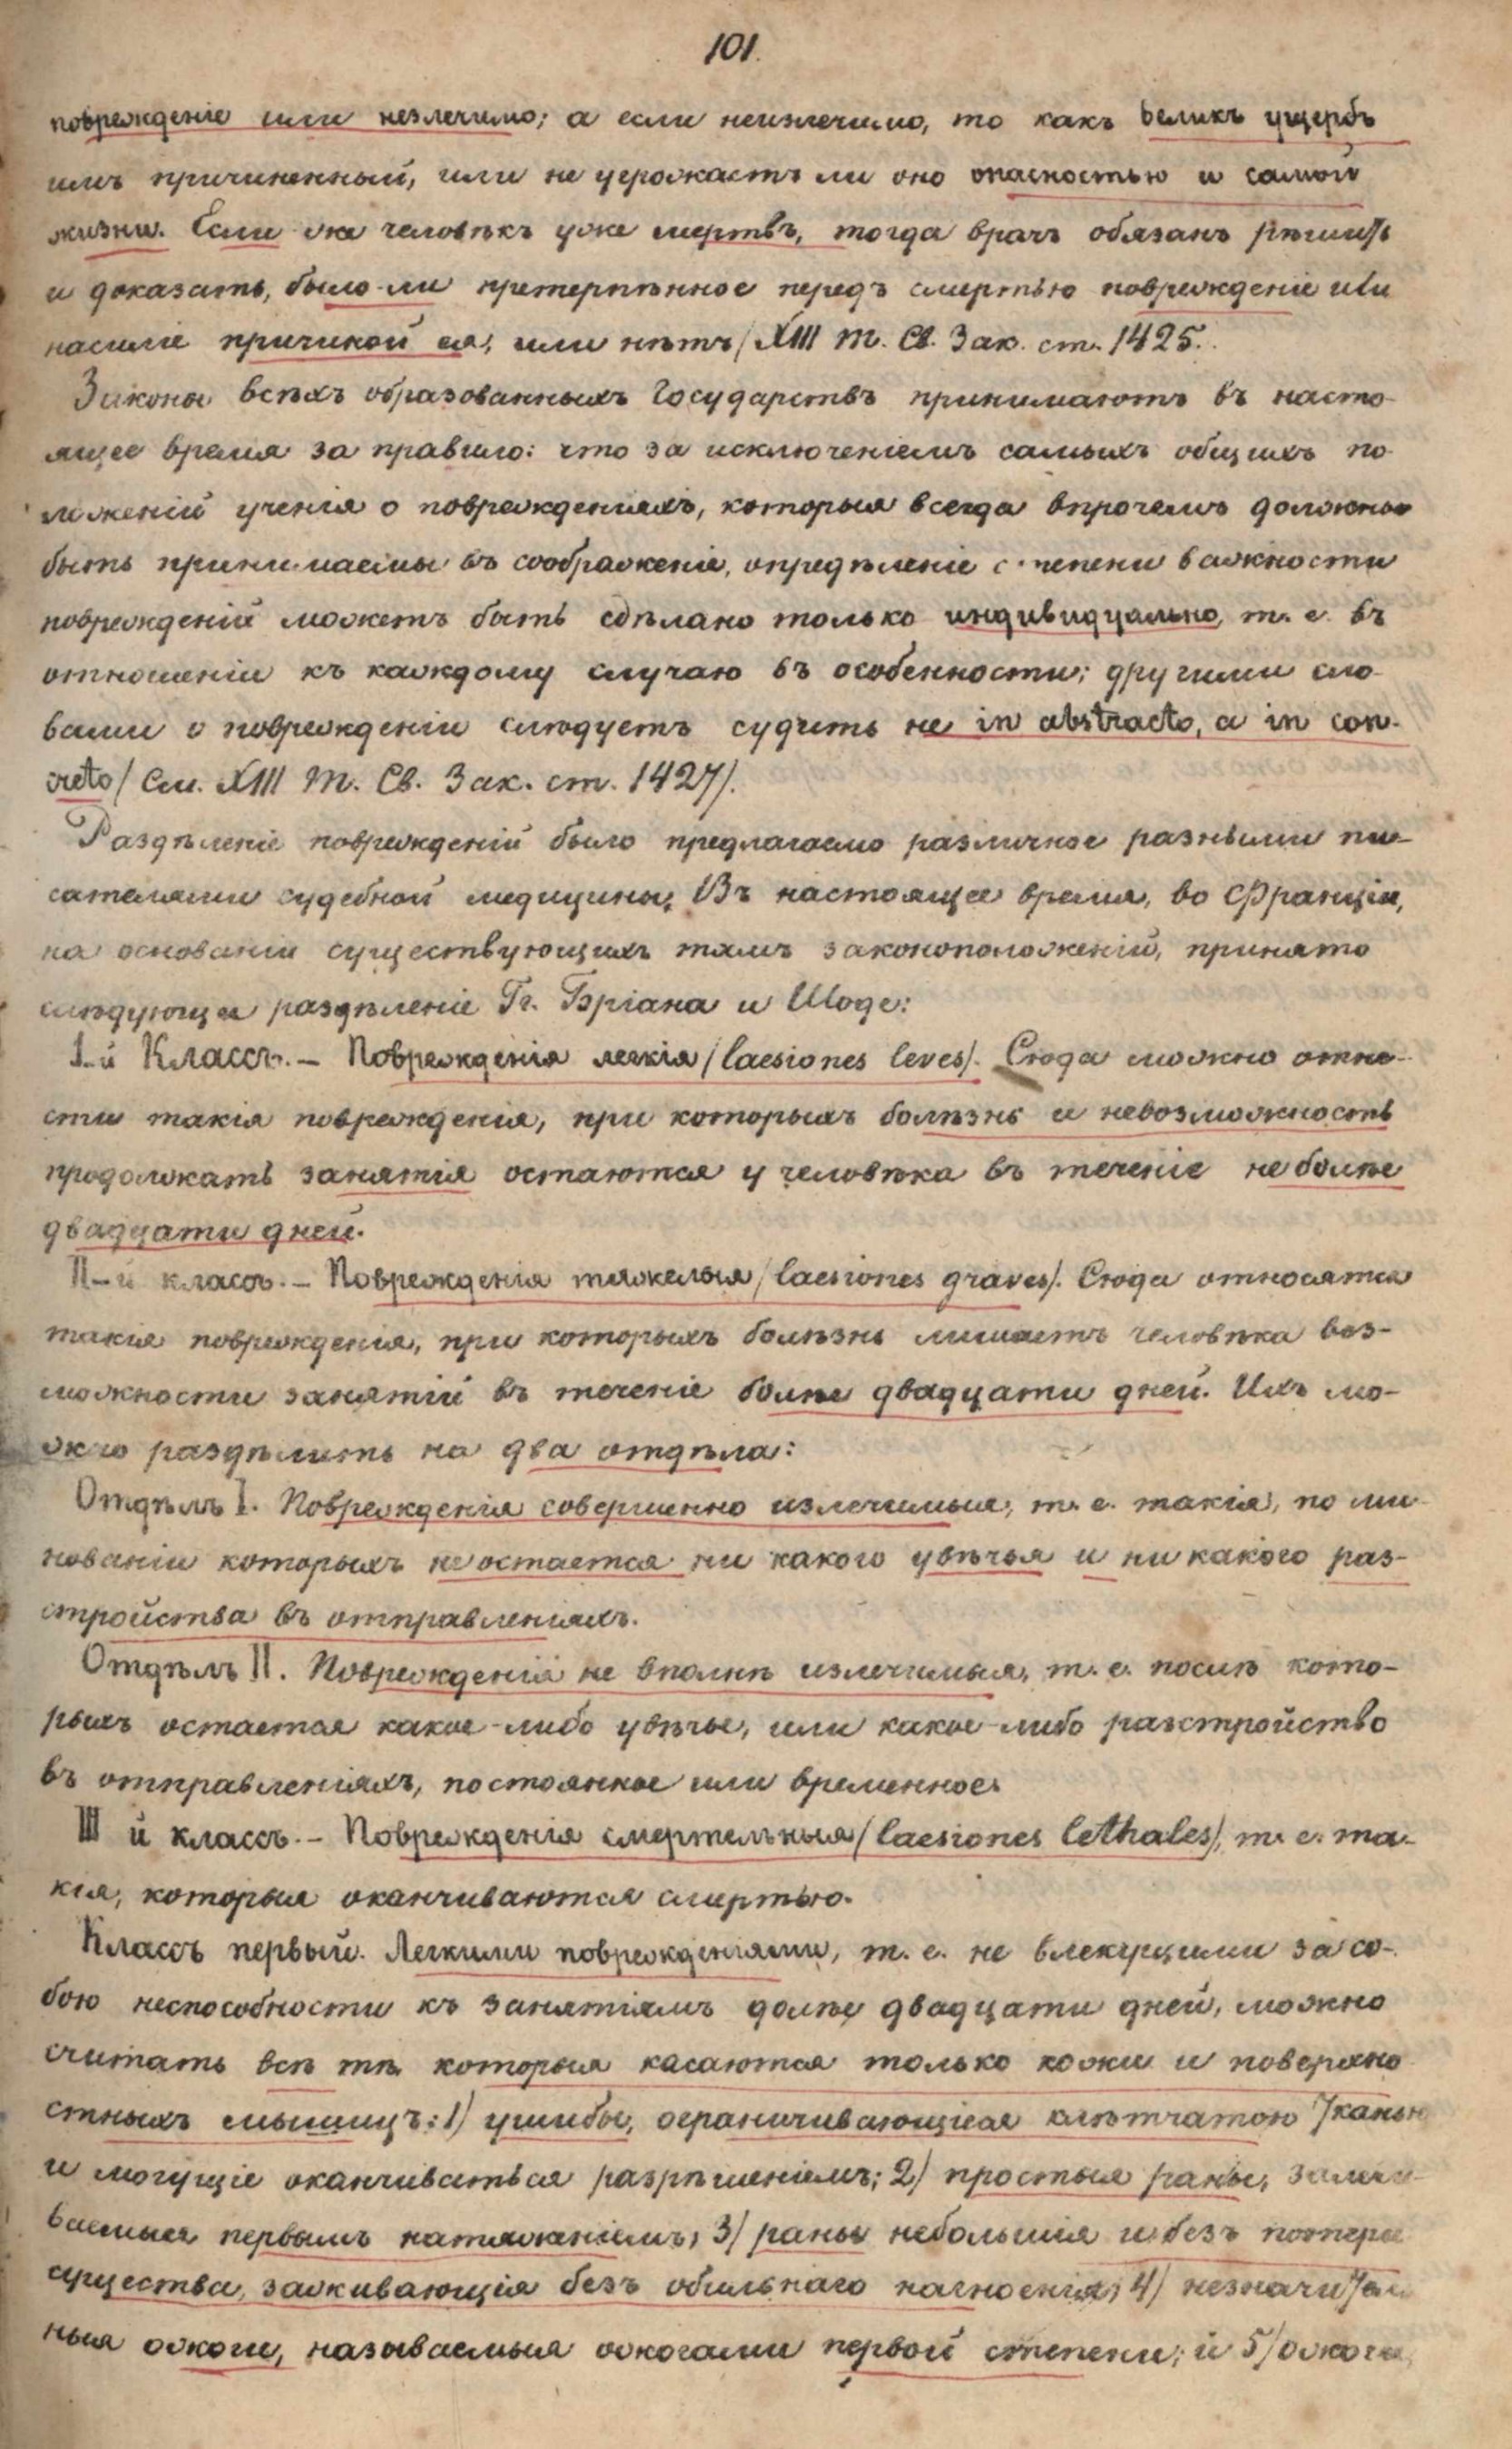 101.
повреждение или незлечимо; а если неизлечимо, то какъ великъ ущербъ
имъ причиненный, или не угрожаетъ ли оно опасностью и самой
жизни. Если же человѣкъ уже мертвъ, тогда врачъ обязанъ рѣшить
и доказать, было-ли претерпѣнное передъ смертью повреждение или
насиліе причиной ея, или нѣтъ/ XIII т. Св. Зак. ст. 1425.
Законы всѣхъ образованныхъ Государствъ принимаютъ въ насто-
ящее время за правило: что за исключеніемъ самыхъ общихъ по-
ложеній ученія о поврежденіяхъ, которыя всегда впрочемъ должны
быть принимаемы въ соображеніе, опредѣленіе степени важности
поврежденій можетъ быть сдѣлано только индивидуально, т. е. въ
отношеніи къ каждому случаю въ особенности; другими сло-
вами о поврежденіи слѣдуетъ судить не in abstracto, а in con-
creto/ См. XIII т. Св. Зак. ст. 1427/.
Раздѣленіе поврежденій было предлагаемо различное разными пи-
сателями судебной медицины. Въ настоящее время, во Франціи,
на основаніи существующихъ тамъ законоположеній, принято
слѣдующее раздѣленіе Гг. Бріана и Шоде:
I-й Классъ. – Поврежденія легкія/laesiones leves/. Сюда можно отне-
сти такія поврежденія, при которыхъ болѣзнь и невозможность
продолжать занятія остаются у человѣка въ теченіе не болѣе
двадцати дней.
II-й классъ. – Поврежденія тяжелыя/laesiones graves/. Сюда относятся
такія поврежденія, при которыхъ болѣзнь лишаетъ человѣка воз-
можности занятій въ теченіе болѣе двадцати дней. Ихъ мо-
жно раздѣлить на два отдѣла:
Отдѣлъ I. Поврежденія совершенно излечимыя, т. е. такія, по ми-
нованіи которыхъ не остается ни какого увѣчья и ни какого раз-
стройства въ отправленіяхъ.
Отдѣлъ II. Поврежденія не вполнѣ излечимыя, т. е. послѣ кото-
рыхъ остается какое-либо увѣчье, или какое-либо разстройство
въ отправленіяхъ, постоянное или временное.
III й классъ. – Поврежденія смертельныя/laesiones lethales/, т. е. та-
кія, которыя оканчиваются смертью.
Классъ первый. Легкими поврежденіями, т. е. не влекущими за со-
бою неспособности къ занятіямъ долѣе двадцати дней, можно
считать всѣ тѣ которыя касаются только кожи и поверхно
стныхъ мышицъ: 1) ушибы, ограничивающіеся клѣтчатою тканью
и могущіе оканчиваться разрѣшеніемъ; 2) простыя раны, залечи-
ваемыя первымъ натяженіемъ; 3/ раны небольшія и безъ потери
существа, заживающія безъ обильнаго нагноенія; 4/ незначитель
ныя ожоги, называемыя ожогами первой степени; и 5/ ожоги,